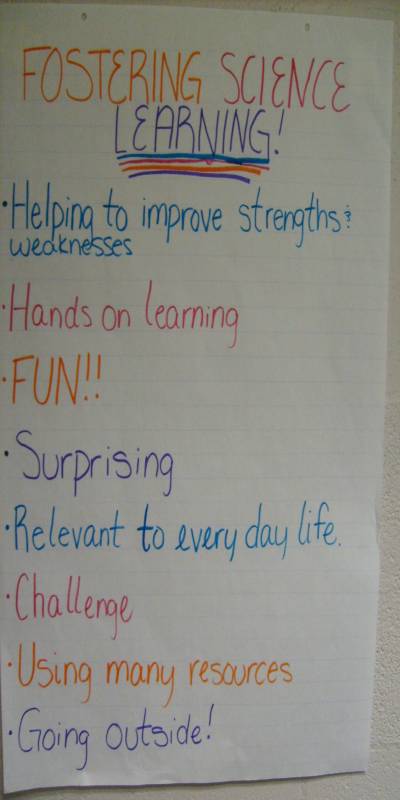 FOSTERING SCIENCE
LEARNING!
·Helping to improve strengths &
weaknesses
·Hands on learning
·FUN!!
·Surprising
·Relevant to every day life.
·Challenge
·Using many resources
·Going outside!